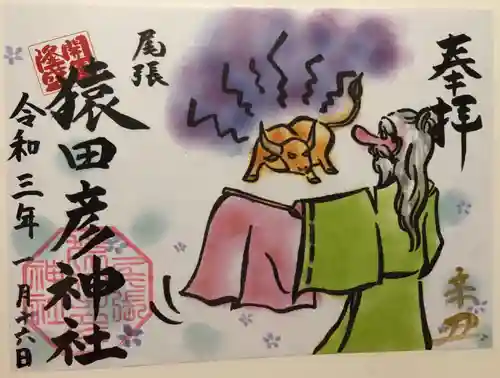 奉拝
辛丑
尾張
猿田彦神社
開運
隆盛
令和三年一月十六日